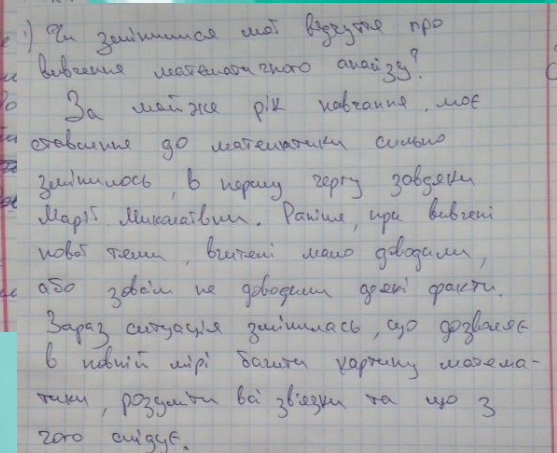 1) Чи змінилися мої відчуття про
вивчення математичного аналізу?
За майже рік навчання моє
ставлення до математики сильно
змінилось, в першу чергу завдяки
Марії Миколаївни. Раніше, при вивчені
нової теми, вчителі мало доводили,
або зовсім не доводили деякі факти.
Зараз ситуація змінилась, що дозволяє
в повній мірі бачити картину матема-
тики, розуміти всі зв'язки та що з
чого слідує.